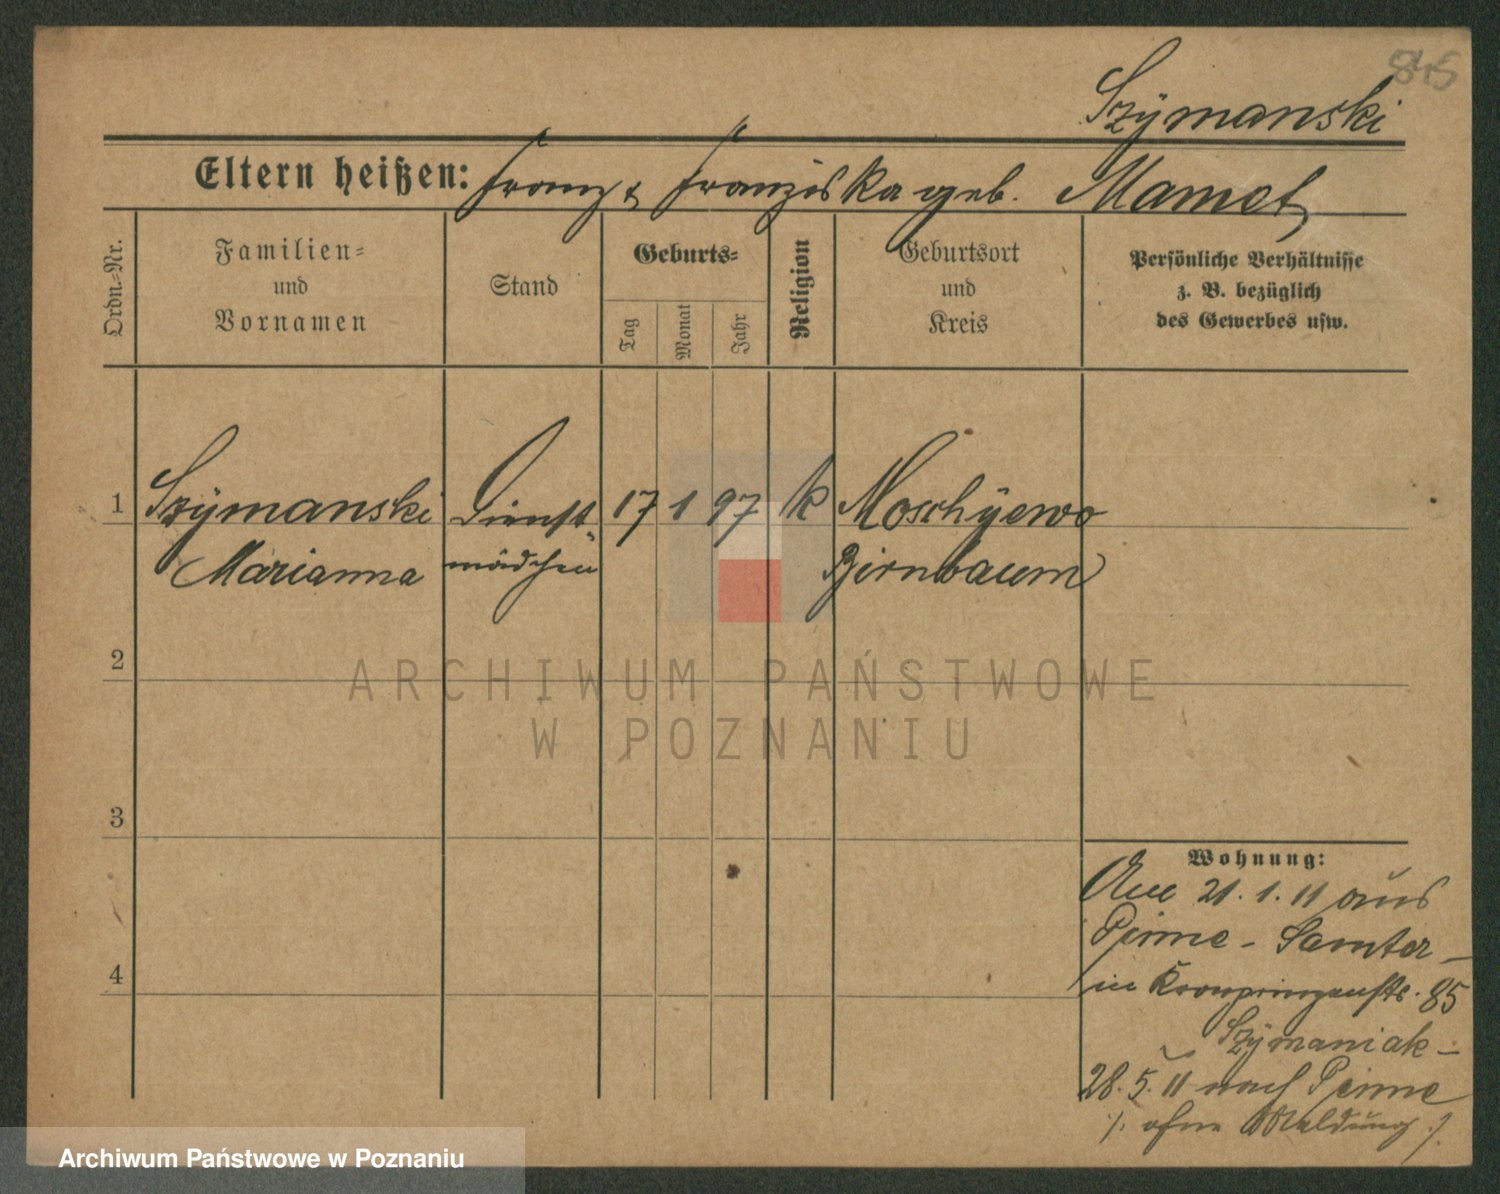 845
Szÿmanski
Eltern heißen: Franz & Franziska geb. Mamet
Ordn.-Nr.
Familien-
und
Vornamen
Stand
Geburts-
Tag
Monat
Jahr
Religion
Geburtsort
und
Kreis
Persönliche Verhältnisse
z. B. bezüglich
des Gewerbes usw.
1 Szÿmanski Dienst 17 1 97 k Moschÿewo
Marianna mädchen Birnbaum
2
3
4
Wohnung:
Am 21.1.11 aus
Pinne - Samter -
in Kronprinzenstr. 85
Szÿmaniak -
28.5.11 nach Pinne
/. ohne Meldung ./.
ARCHIWUM PAŃSTWOWE
W POZNANIU
Archiwum Państwowe w Poznaniu